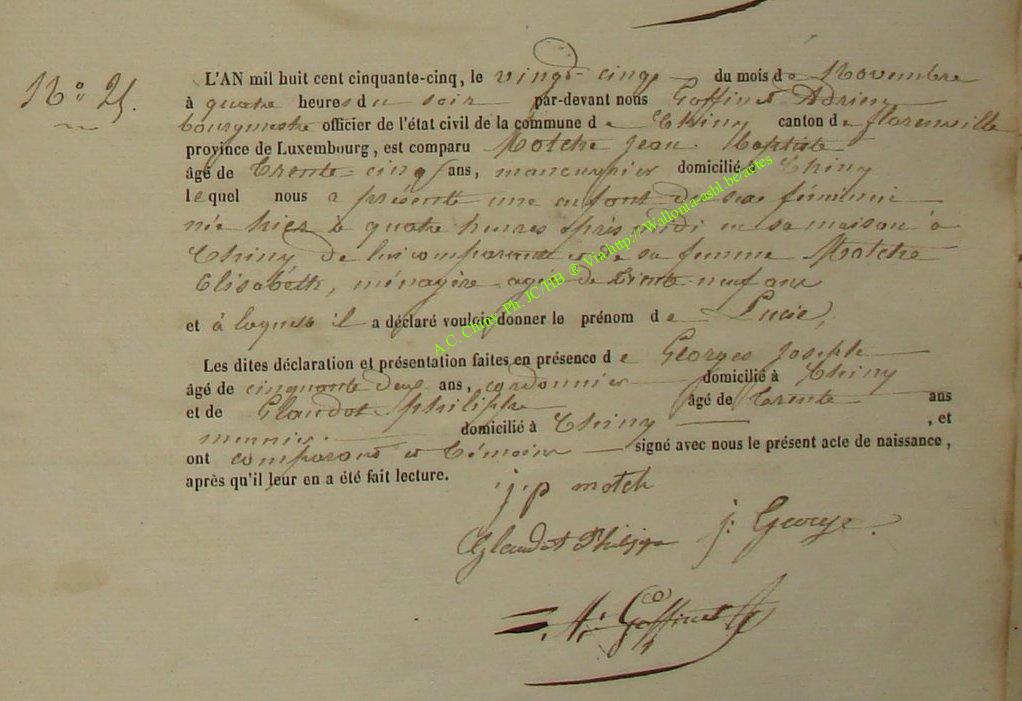 N° 25.
L'AN mil huit cent cinquante-cinq, le vingt-cinq du mois de Novembre
à quatre heures du soir par-devant nous Goffinet Adrien
bourgmestre officier de l'état civil de la commune de Chiny canton de florenville
province de Luxembourg, est comparu Motche Jean Baptiste
âgé de trente-cinq ans, manoeuvrier domicilié à Chiny
lequel nous a présenté une enfant du sexe féminin
née hier à quatre heures après midi en sa maison à
Chiny de lui comparant et de sa femme Motche
Elisabéth, ménagère agée de trente-neuf ans
et à laquelle il a déclaré vouloir donner le prénom de Lucie,
Les dites déclaration et présentation faites en présence de Georges Joseph
âgé de cinquante deux ans, cordonnier domicilié à Chiny
et de Glaudot philippe âgé de trente ans
meunier. domicilié à Chiny , et
ont comparant et témoins signé avec nous le présent acte de naissance,
après qu'il leur en a été fait lecture.
j.p motch
Glaudot Philippe j: George.
A: Goffinet
A.C. Chiny-Ph. JC/HB ® Via http://Wallonia-asbl.be/actes